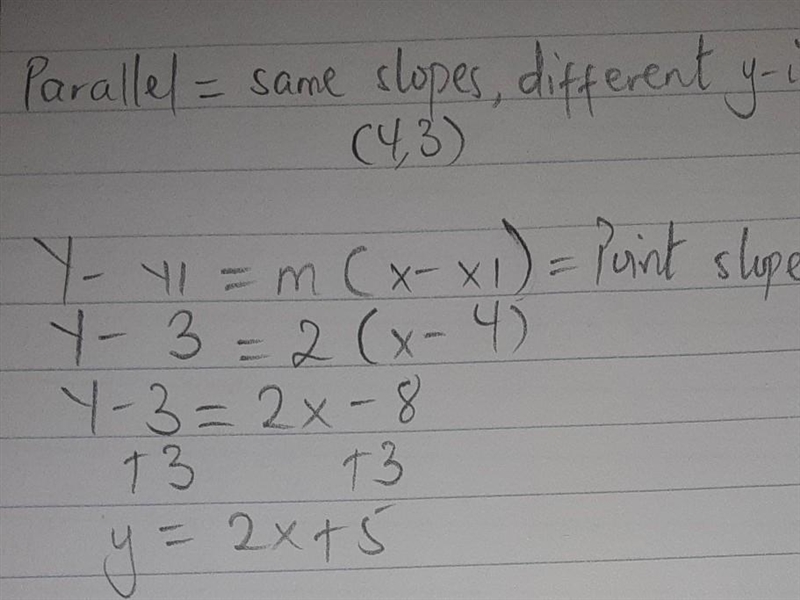 Parallel = same slopes, different y-i
(4,3)
Y - y1 = m (x - x1) = Point slope
Y - 3 = 2 (x - 4)
Y - 3 = 2x - 8
+3 +3
y = 2x + 5